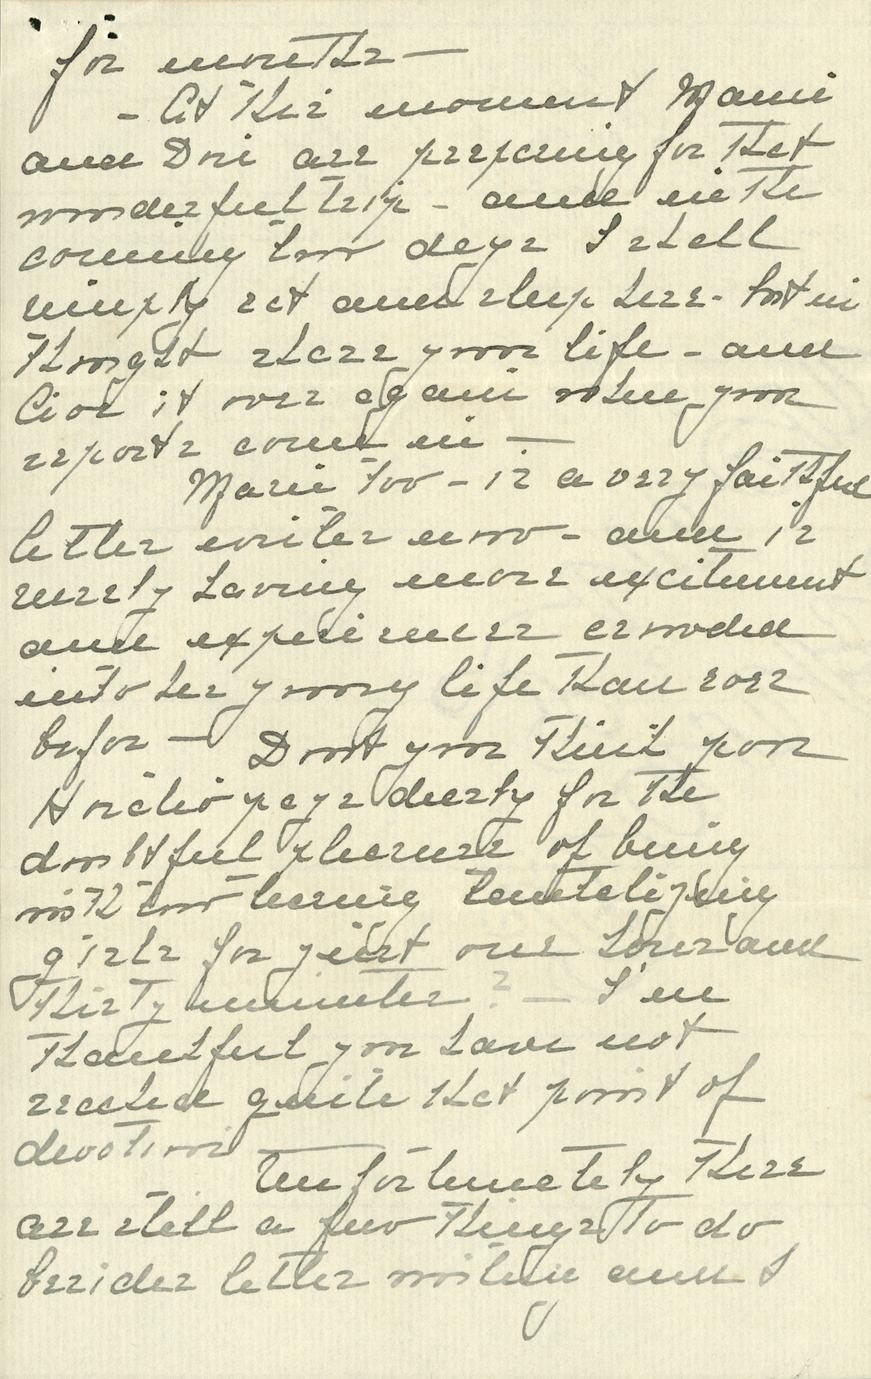 for months —
- At this moment Mami
and Dori are preparing for that
wonderful trip - and in the
coming two days I shall
simply eat and sleep here - but in
thought share your life - and
live it over again when your
reports come in —
Marie too - is a very faithful
letter writer now - and is
surely having more excitement
and experiences crowded
into her young life than ever
before — Dont you think poor
Horchio pays dearly for the
doubtful pleasure of being
with two teasing tantalizing
girls for just one hour and
thirty minutes ? — I'm
thankful you have not
reached quite that point of
devotion
Unfortunately there
are still a few things to do
besides letter writing and I